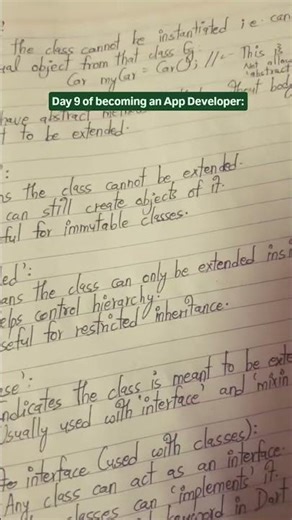 the class cannot be instantiated i.e. can
ual object from that class Eg.
Car myCar = Car(); // ← This is
not allow
Day 9 of becoming an App Developer:
have abstract
'abstract
thout body
t to be extended.
ns the class cannot be extended.
can still create objects of it.
ful for immutable classes.
led':
ans the class can only be extended ins
elps control hierarchy.
seful for restricted inheritance.
ase':
ndicates the class is meant to be exte
Usually used with 'interface' and 'mixin
interface (used with classes):
Any class can act as an interface.
classes can 'implements' it.
keyword in Dart